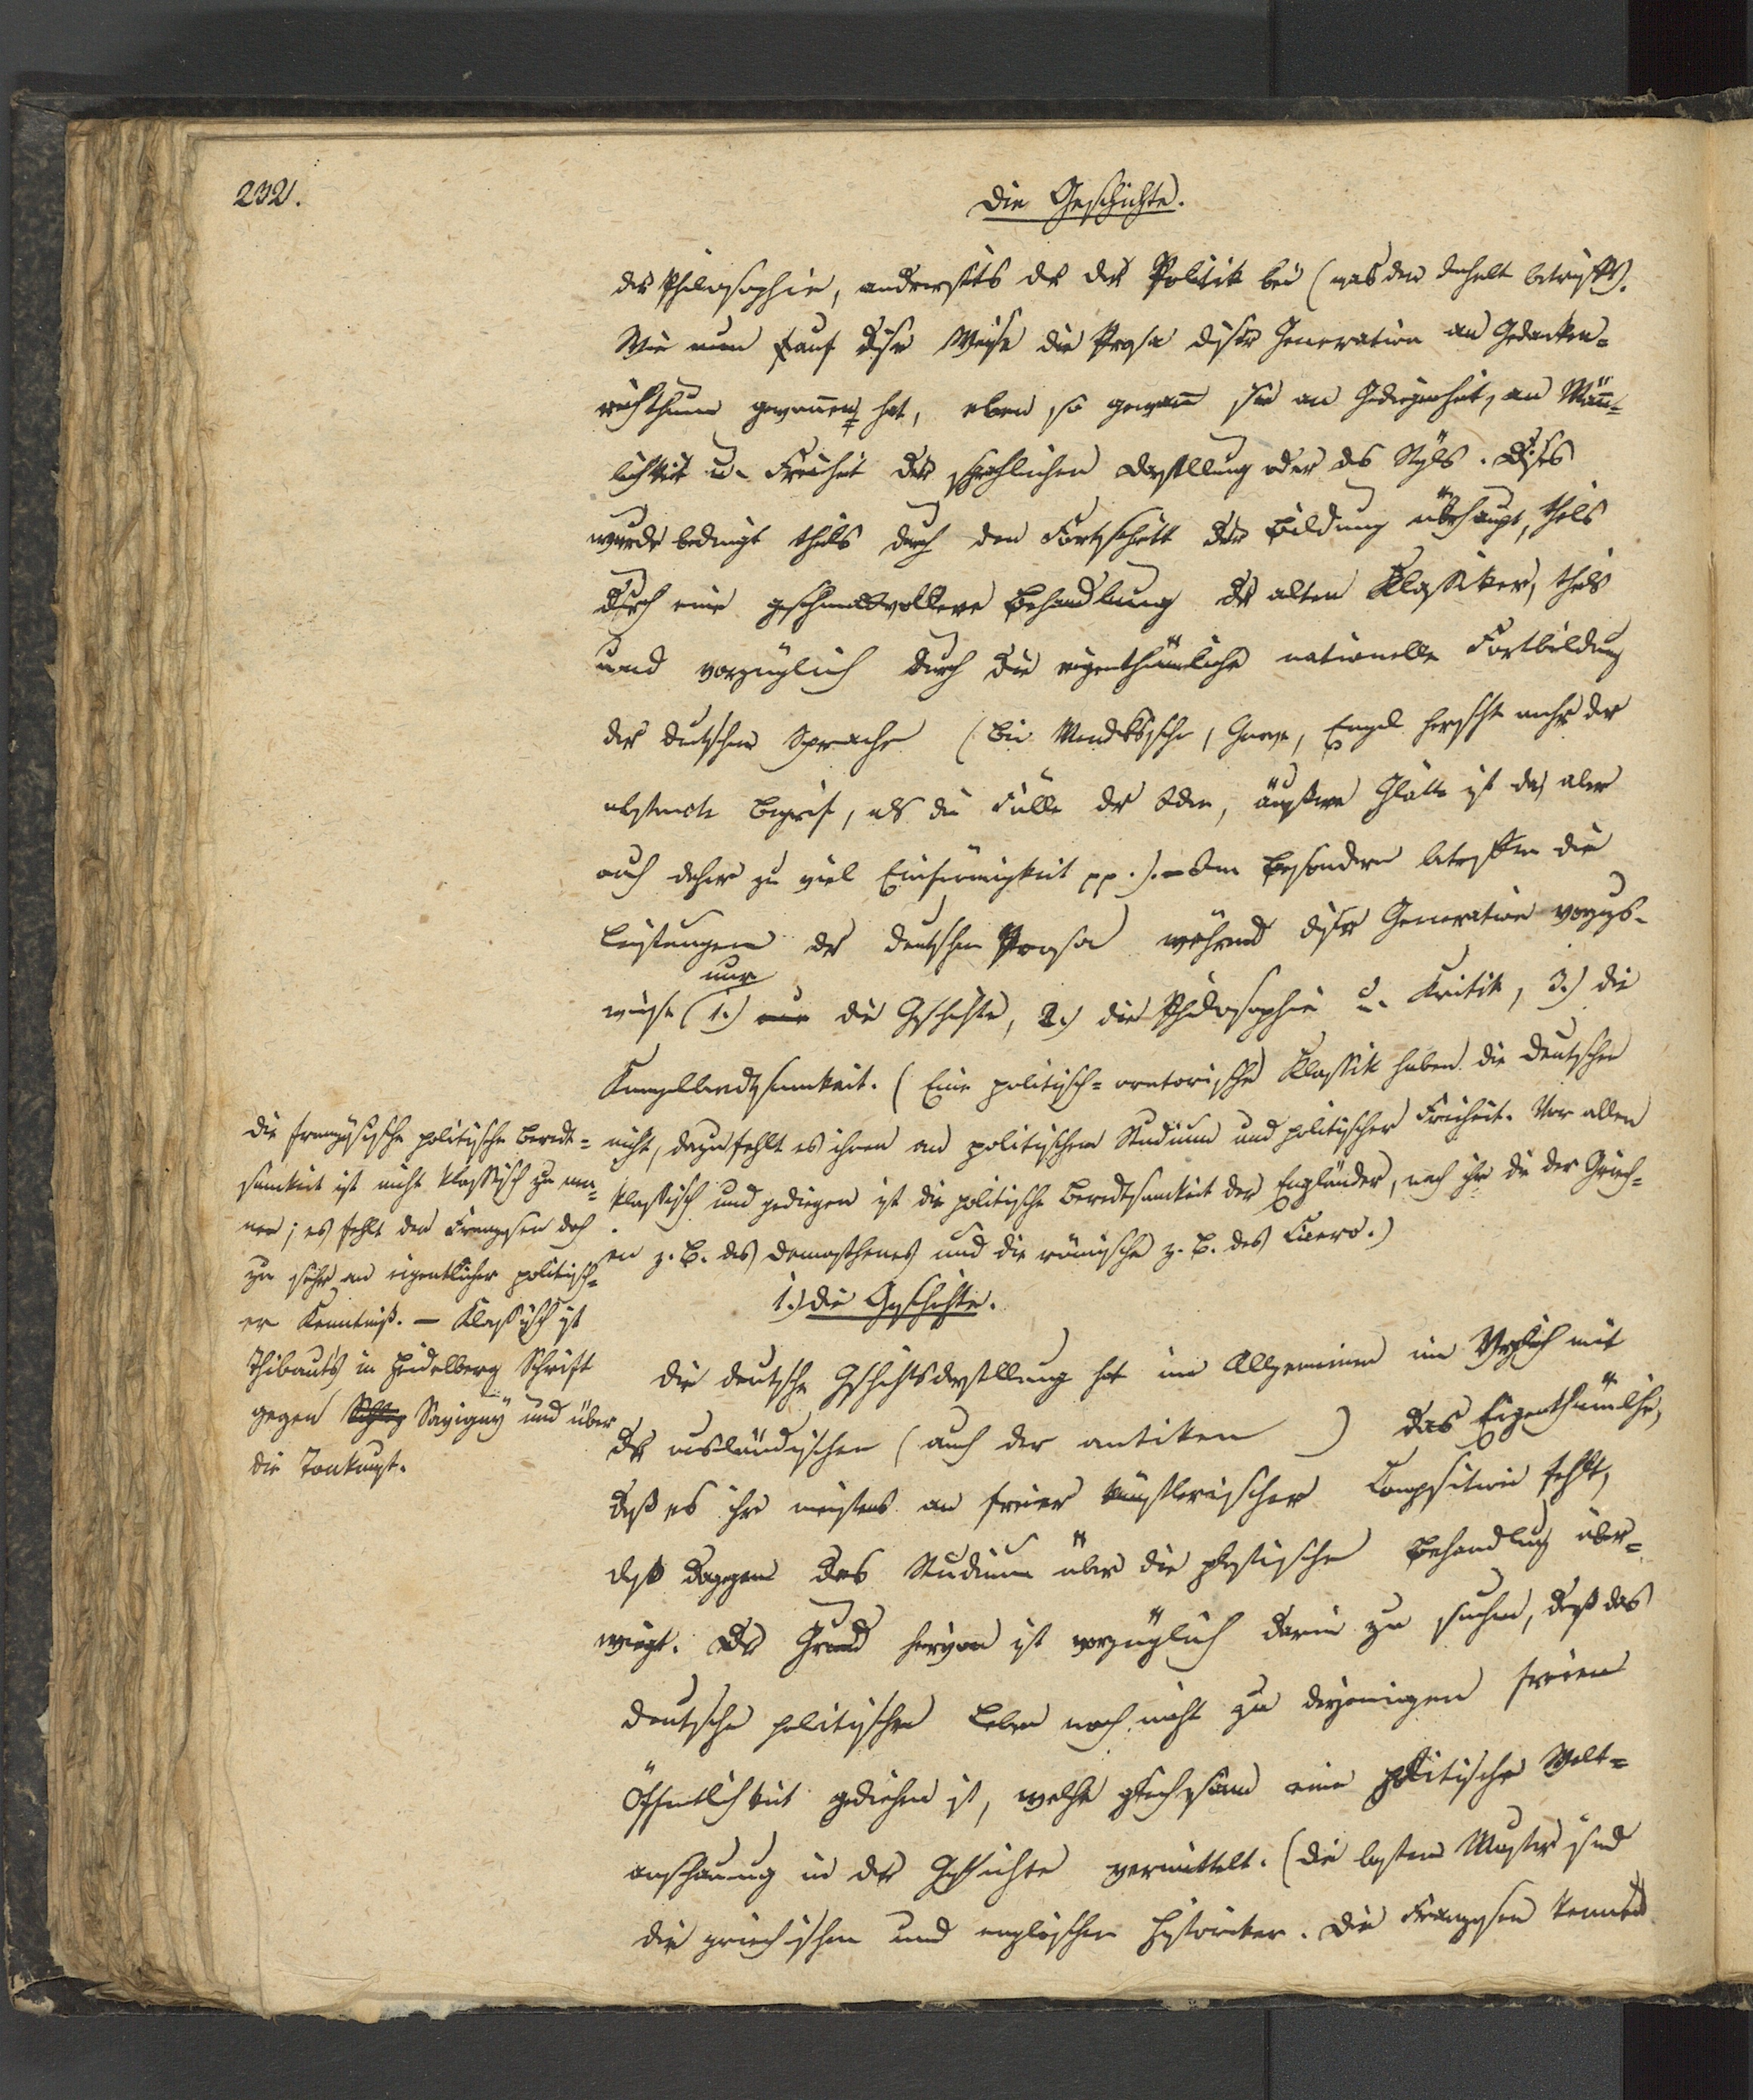 232.
Die Geschichte.
der Philosophie, anderseits der der Politik bei (was den Inhalt betrifft).
Wie nun auf diese Weise die Prosa dieser Generation an Gedanken-
reichthum gewonnen hat, eben so gewann sie an Gediegenheit, an Männ-
lichkeit u. Freiheit der sprachlichen Darstellung oder des Styls. Dieses
wurde bedingt theils durch den Fortschritt der Bildung überhaupt, theils
durch eine geschmackvollere Behandlung der alten Klassiker, theils
und vorzüglich durch die eigenthümliche nationelle Fortbildung
der deutschen Sprache (Bei Mendelssohn, Garve, Engel herrscht mehr der
abstracte Begriff, als die Fülle der Idee, äußere Glätte ist da, aber
auch daher zu viel Einförmigkeit pp.). – Im Besondern betreffen die
Leistungen der deutschen Prosa während dieser Generation vorzugs-
nur
weise (1.) nur die Geschichte, 2.) die Philosophie u. Kritik, 3.) die
Kanzelberedtsamkeit. (Eine politisch-oratorische Klassik haben die Deutschen
nicht, dazu fehlt es ihnen an politischem Studium und politischer Freiheit. Vor allen
klassisch und gediegen ist die politische Beredtsamkeit der Engländer, nach ihr die der Griech-
en z. B. des Demosthenes und die römische z. B. des Cicero.)
Die französische politische Beredt-
samkeit ist nicht klassisch zu nen-
nen; es fehlt den Franzosen doch
zu sehr an eigentlicher politisch-
er Kenntniß. – Klassisch ist
Thibaut's in Heidelberg Schrift
gegen Savigny und über
die Tonkunst.
1.) Die Geschichte.
Die deutsche Geschichtsdarstellung hat im Allgemeinen im Vergleich mit
der ausländischen (auch der antiken) das Eigenthümliche,
daß es ihr meistens an freier künstlerischer Composition fehlt,
daß dagegen das Studium über die plastische Behandlung über-
wiegt. Der Grund hiervon ist vorzüglich darin zu suchen, daß das
deutsche politische Leben noch nicht zu derjenigen freien
Öffentlichkeit gediehen ist, welche gleichsam eine politische Welt-
anschauung in der Geschichte vermittelt. (Die besten Muster sind
die griechischen und englischen Historiker. Die Franzosen kennen